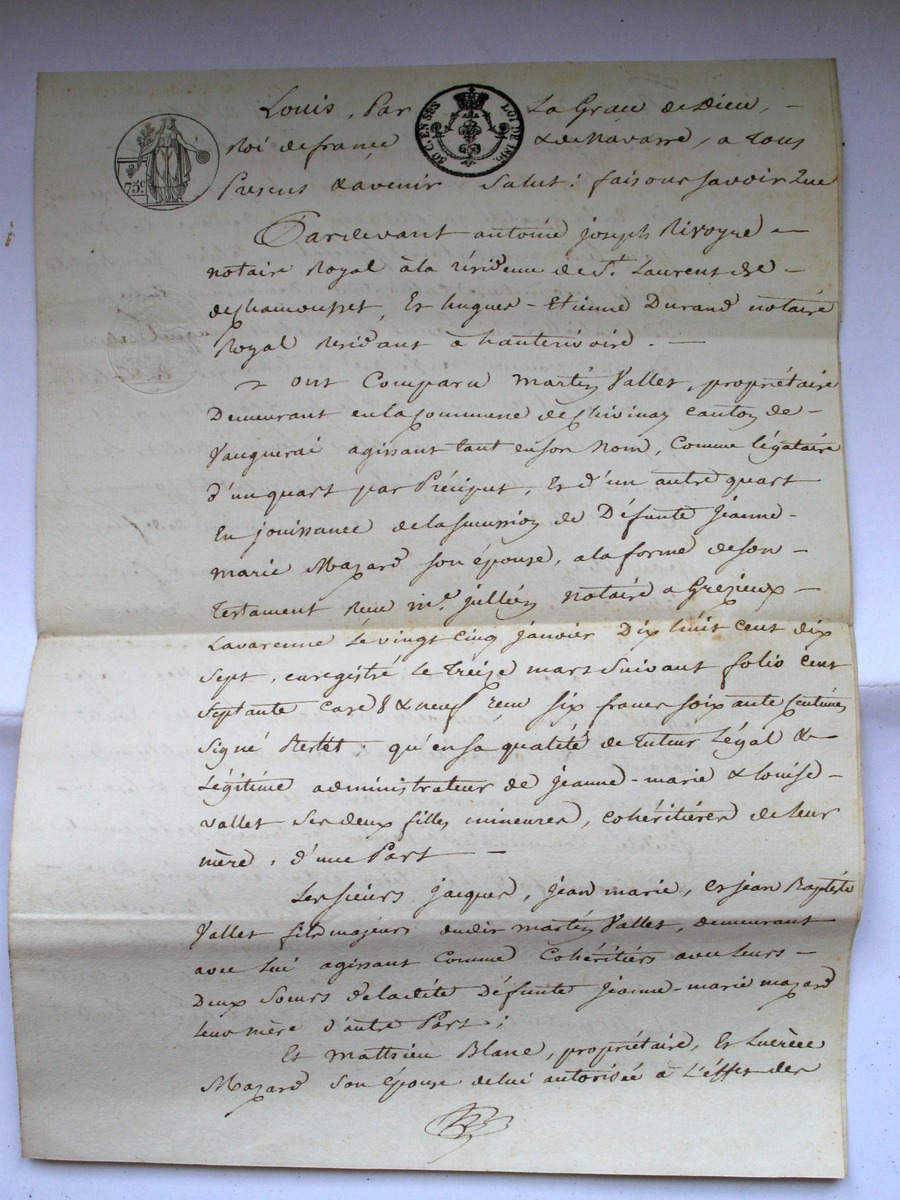 Louis, Par La Grace de Dieu, -
Roi de france & de Navarre, a tous
Presens & avenir Salut: faisons savoir Que
75c.
50 C. EN SUS LOI DE 1816.
Pardevant antoine joseph Rivoyre -
notaire Royal à la résidence de St. Laurent de -
de Chamousset, Et hugues - Etienne Durand notaire
Royal Residant à hauterivoire. -
ont Comparu martin Vallet, propriétaire
Demeurant en la Commune de Chivinay canton de -
Vaugnerai agissant tant en son Nom, comme légataire
d'un quart par Préciput, Et d'un autre quart
En jouissance de la succession de Défunte Jeanne -
marie Mazard son épouse, a la forme de son -
testament Reçu me. jullien notaire a Grezieux -
Lavarenne Le vingt cinq janvier Dix huit cent dix
sept, enregistré le treize mars suivant folio cent
septante case 8 & neuf reçu six francs soixante Centimes
signé Bertet: qu'en sa qualité de tuteur Légal &
Légitime administrateur de jeanne-marie & louise -
vallet ses deux filles mineures, cohéritières de leur
mère, d'une Part -
Les sieurs jacques, jean marie, et jean Baptiste
Vallet fils majeurs dudit martin Vallet, demeurant
avec lui agissant Comme Cohéritiers avec leurs -
Deux soeurs de la dite Défunte Jeanne-marie mazard
leur mère d'autre Part;
Et mathieu Blanc, propriétaire, Et Lucrèce
Mazard son épouse de lui autorisée à L'effet des